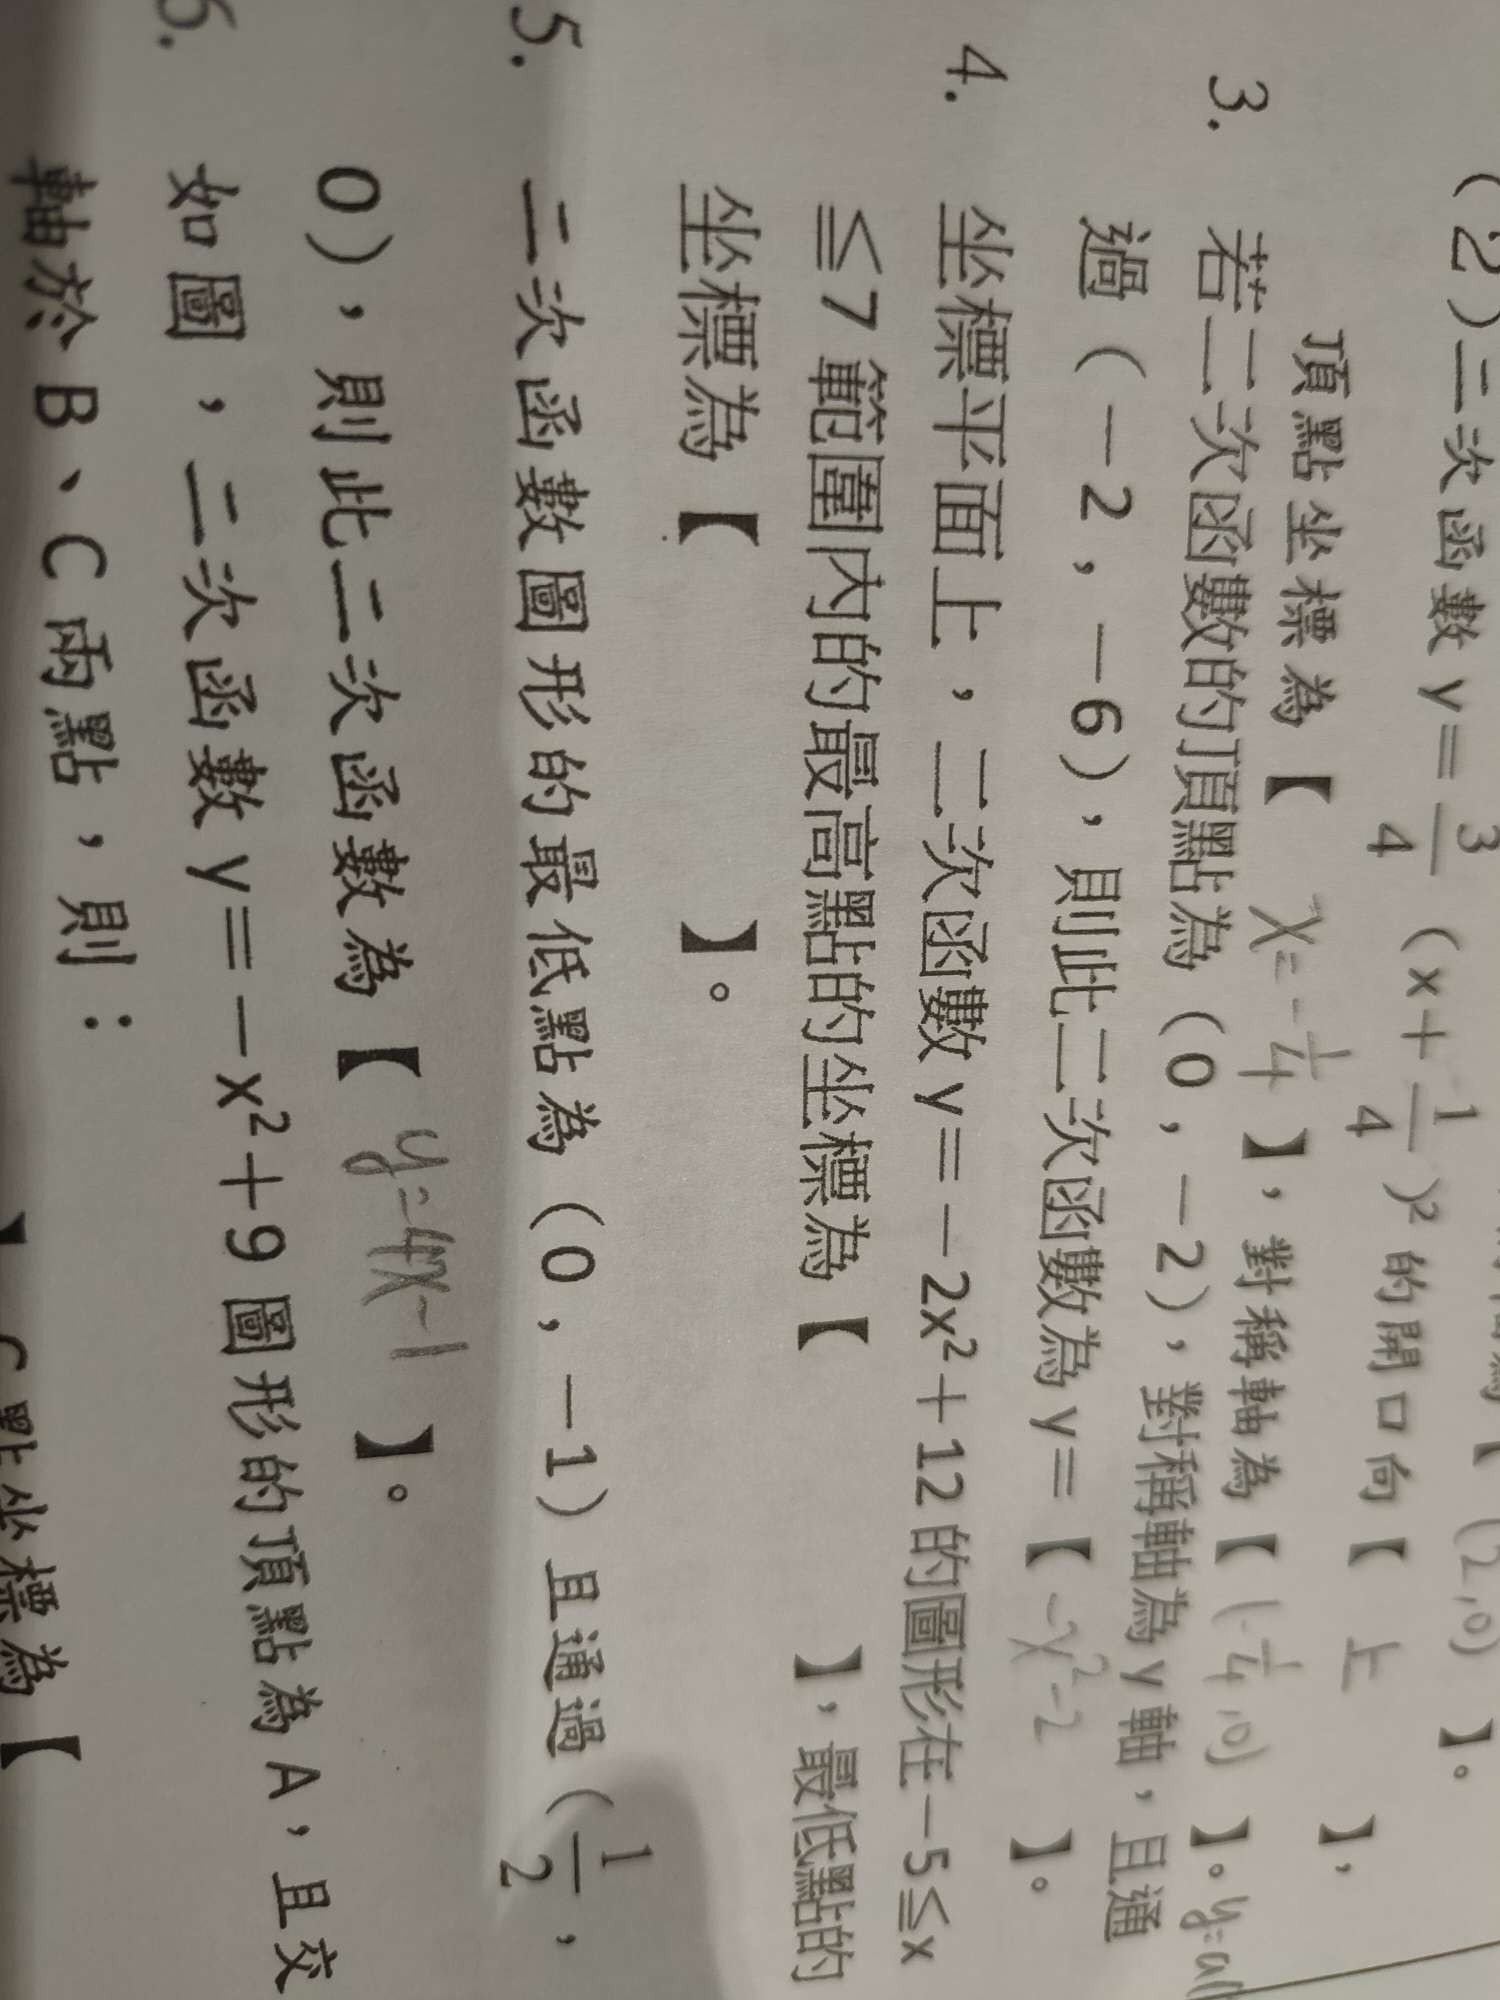 (2,0) 】。
（2）二次函數 y＝3/4（x＋1/4）² 的開口向【 上 】，
頂點坐標為【 x=-1/4 】，對稱軸為【 (-1/4,0) 】。
3. 若二次函數的頂點為（0，－2），對稱軸為 y 軸，且通
過（－2，－6），則此二次函數為 y＝【 -x²-2 】。
4. 坐標平面上，二次函數 y＝－2x²＋12 的圖形在－5≦x
≦7 範圍內的最高點的坐標為【 】，最低點的
坐標為【 】。
5. 二次函數圖形的最低點為（0，－1）且通過（1/2，
0），則此二次函數為【 y=4x-1 】。
6. 如圖，二次函數 y＝－x²＋9 圖形的頂點為 A，且交
軸於 B、C 兩點，則：
】 C 點坐標為【